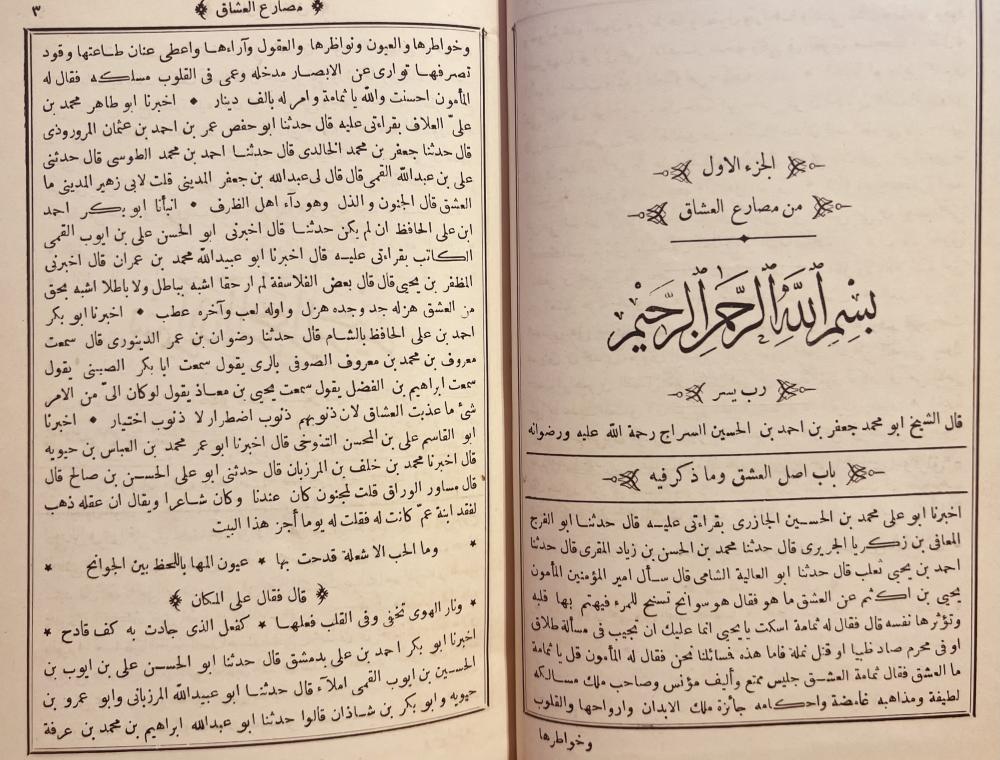 الجزء الاول
من مصارع العشاق
بِسْمِ ٱللَّهِ ٱلرَّحْمٰنِ ٱلرَّحِيْمِ
رب يسر
قال الشيخ ابو محمد جعفر بن احمد بن الحسين السراج رحمة الله عليه ورضوانه
باب اصل العشق وما ذكر فيه
اخبرنا ابو على محمد بن الحسين الجازرى بقراءتى عليه قال حدثنا ابو الفرج
المعافى بن زكريا الجريرى قال حدثنا محمد بن الحسن بن زياد المقرى قال حدثنا
احمد بن يحيى ثعلب قال حدثنا ابو العالية الشامى قال سأل امير المؤمنين المأمون
يحيى بن اكثم عن العشق ما هو فقال هو سوانح تسنح للمرء فيهتم بها قلبه
وتؤثرها نفسه قال فقال له ثمامة اسكت يا يحيى انما عليك ان تجيب فى مسألة طلاق
او فى محرم صاد ظبيا او قتل نملة فاما هذه فسائلنا نحن فقال له المأمون قل يا ثمامة
ما العشق فقال ثمامة العشق جليس ممتع وأليف مؤنس وصاحب ملك مسالكه
لطيفة ومذاهبه غامضة واحكامه جائزة ملك الابدان وارواحها والقلوب
وخواطرها
مصارع العشاق
٣
وخواطرها والعيون ونواظرها والعقول وآراءها واعطى عنان طاعتها وقود
تصرفها توارى عن الابصار مدخله وعمى فى القلوب مسلكه فقال له
المأمون احسنت والله يا ثمامة وامر له بالف دينار * اخبرنا ابو طاهر محمد بن
علىّ العلاف بقراءتى عليه قال حدثنا ابو حفص عمر بن احمد بن عثمان المروروذى
قال حدثنا جعفر بن محمد الخالدى قال حدثنا احمد بن محمد الطوسى قال حدثنى
على بن عبدالله القمى قال قال لى عبدالله بن جعفر المدينى قلت لابى زهير المدينى ما
العشق قال الجنون والذل وهو دآء اهل الظرف * انبأنا ابو بكر احمد
ابن على الحافظ ان لم يكن حدثنا قال اخبرنى ابو الحسن على بن ايوب القمى
الكاتب بقراءتى عليه قال اخبرنا ابو عبيدالله محمد بن عمران قال اخبرنى
المظفر بن يحيى قال قال بعض الفلاسفة لم ار حقا اشبه بباطل ولا باطلا اشبه بحق
من العشق هزله جد وجده هزل واوله لعب وآخره عطب * اخبرنا ابو بكر
احمد بن على الحافظ بالشام قال حدثنا رضوان بن عمر الدينورى قال سمعت
معروف بن محمد بن معروف الصوفى بالرى يقول سمعت ابا بكر الصينى يقول
سمعت ابراهيم بن الفضل يقول سمعت يحيى بن معاذ يقول لوكان الىّ من الامر
شئ ما عذبت العشاق لان ذنوبهم ذنوب اضطرار لا ذنوب اختيار * اخبرنا
ابو القاسم على بن المحسن التنوخى قال اخبرنا ابو عمر محمد بن العباس بن حيويه
قال اخبرنا محمد بن خلف بن المرزبان قال حدثنى ابو على الحسن بن صالح قال
قال مساور الوراق قلت لمجنون كان عندنا وكان شاعرا ويقال ان عقله ذهب
لفقد ابنة عمّ كانت له فقلت له يوما أجز هذا البيت
* وما الحب الا شعلة قدحت بها * عيون المها باللحظ بين الجوانح *
قال فقال على المكان
* ونار الهوى تخفى وفى القلب فعلها * كفعل الذى جادت به كف قادح *
اخبرنا ابو بكر احمد بن على بدمشق قال حدثنا ابو الحسن على بن ايوب بن
الحسين بن ايوب القمى املآء قال حدثنا ابو عبيدالله المرزبانى وابو عمرو بن
حيويه وابو بكر بن شاذان قالوا حدثنا ابو عبدالله ابراهيم بن محمد بن عرفة